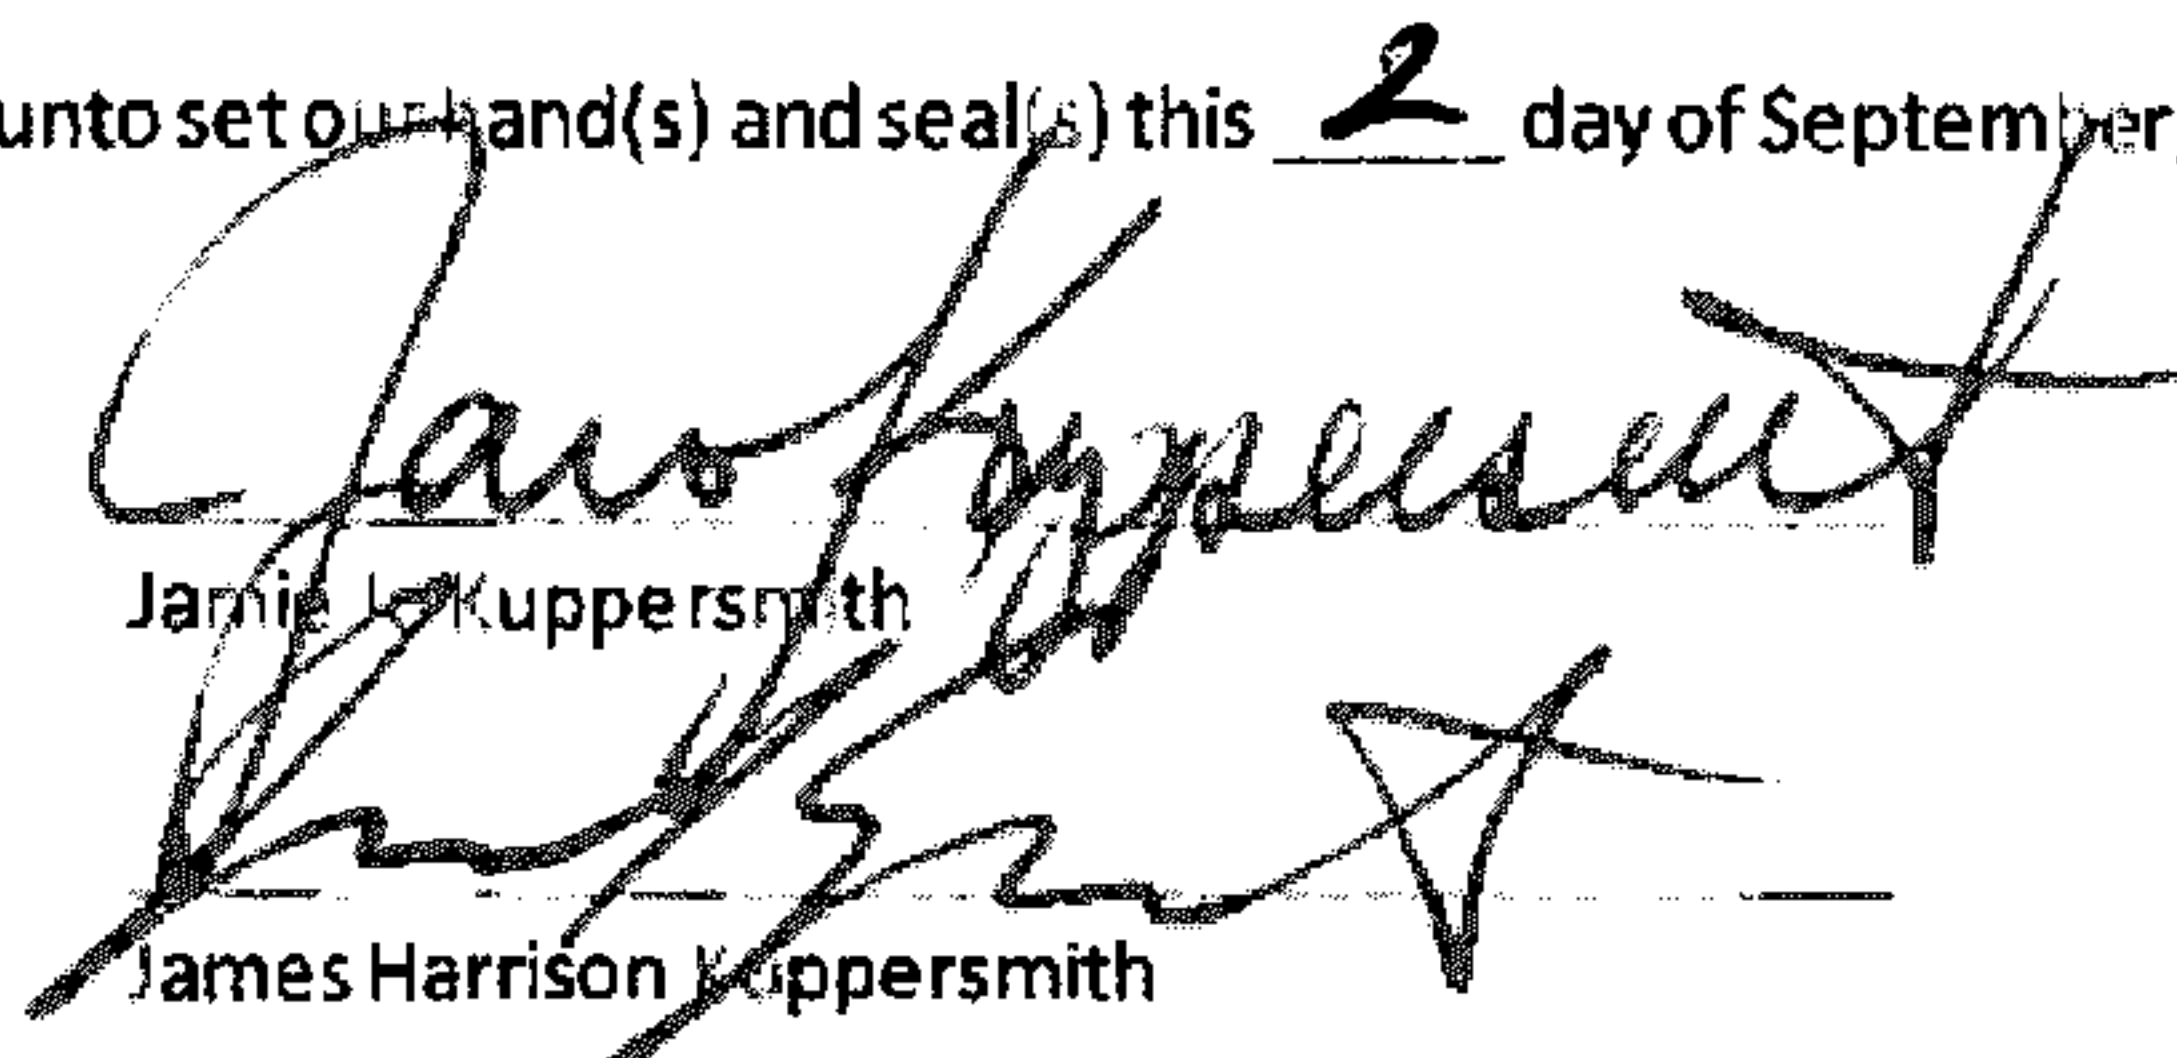 unto set our hand(s) and seal(s) this 2 day of September,
Jamie Lo Kuppersmith
James Harrison Kuppersmith